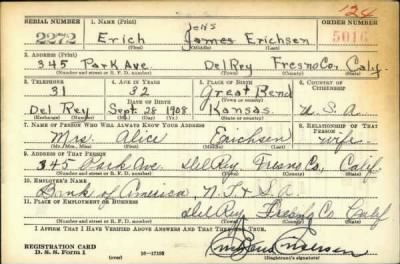 124
SERIAL NUMBER 1. NAME (Print) ORDER NUMBER
Jens
2272 Erich James Erichsen 5016
(First) (Middle) (Last)
2. ADDRESS (Print)
345 Park Ave. Del Rey Fresno Co. Calif.
(Number and street or R. F. D. number) (Town) (County) (State)
3. TELEPHONE 4. AGE IN YEARS 5. PLACE OF BIRTH 6. COUNTRY OF CITIZENSHIP
31 32 Great Bend
DATE OF BIRTH (Town or county)
Del Rey Sept. 28 1908 Kansas. U. S. A.
(Exchange) (Number) (Mo.) (Day) (Yr.) (State or country)
7. NAME OF PERSON WHO WILL ALWAYS KNOW YOUR ADDRESS 8. RELATIONSHIP OF THAT PERSON
Mrs. Alice Erichsen wife.
(Mr., Mrs., Miss) (First) (Middle) (Last)
9. ADDRESS OF THAT PERSON
345 Park Ave Del Rey Fresno Co, Calif
(Number and street or R. F. D. number) (Town) (County) (State)
10. EMPLOYER'S NAME
Bank of America, N. T. & S. A
11. PLACE OF EMPLOYMENT OR BUSINESS
Del Rey Fresno Co Calif
(Number and street or R. F. D. number) (Town) (County) (State)
I AFFIRM THAT I HAVE VERIFIED ABOVE ANSWERS AND THAT THEY ARE TRUE.
REGISTRATION CARD
D. S. S. Form 1 16—17105 (Registrant's signature)